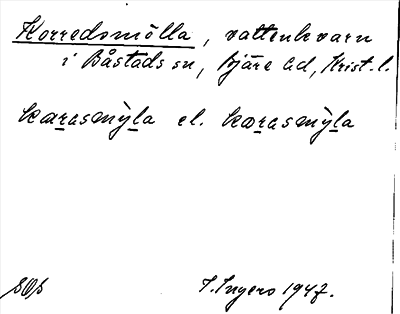 Korredsmölla, vattenkvarn
i Båstads sn, Bjäre hd, Krist. l.
kærasmỳla el. kærasmỳla
I. Ingers 1947.